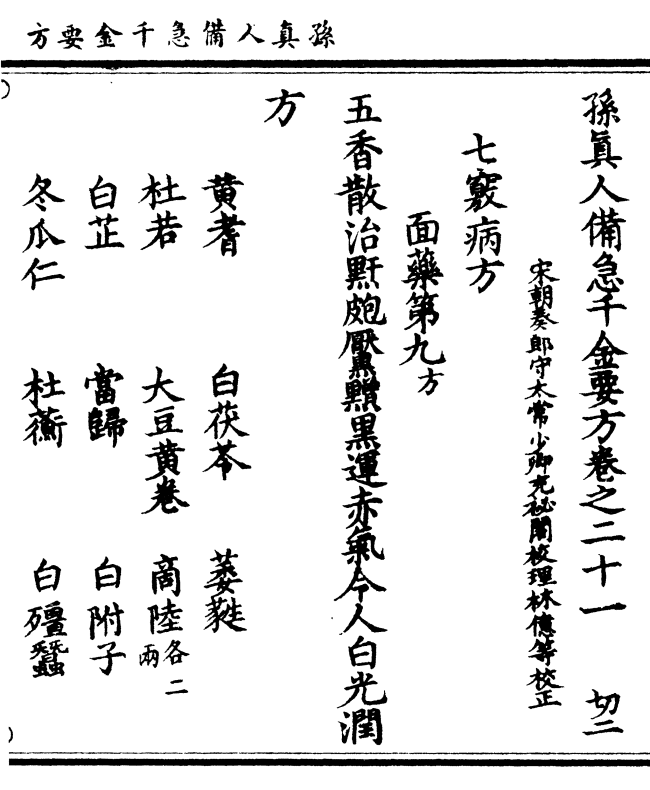 孫真人備急千金要方
孫眞人備急千金要方卷之二十一 切二
宋朝奏郎守太常少卿充祕閣校理林億等校正
七竅病方
面藥第九方
五香散治䵟皰黶䵴黑運赤氣令人白光潤
方
黄耆 白茯苓 萎蕤
杜若 大豆黄卷 商陸各二兩
白芷 當歸 白附子
冬瓜仁 杜蘅 白殭蠶